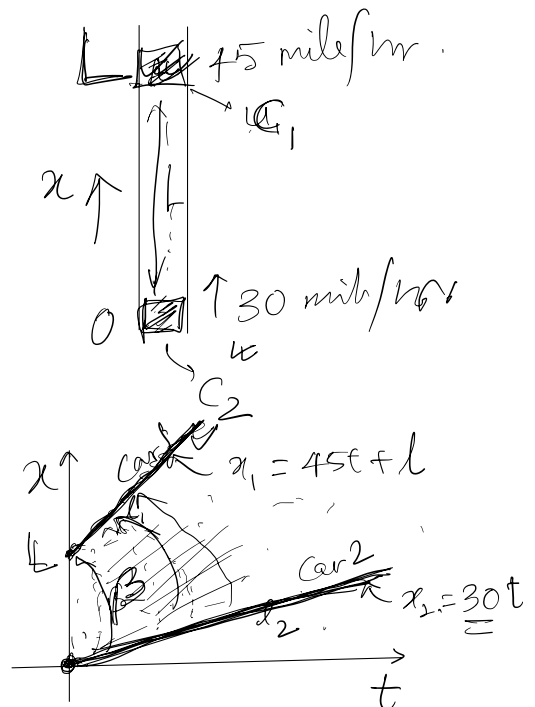 L 45 mile/hr.
C1
x
L
0 30 mile/hr
C2
x
car
x1 = 45t + l
L
car2
x2 = 30t
t